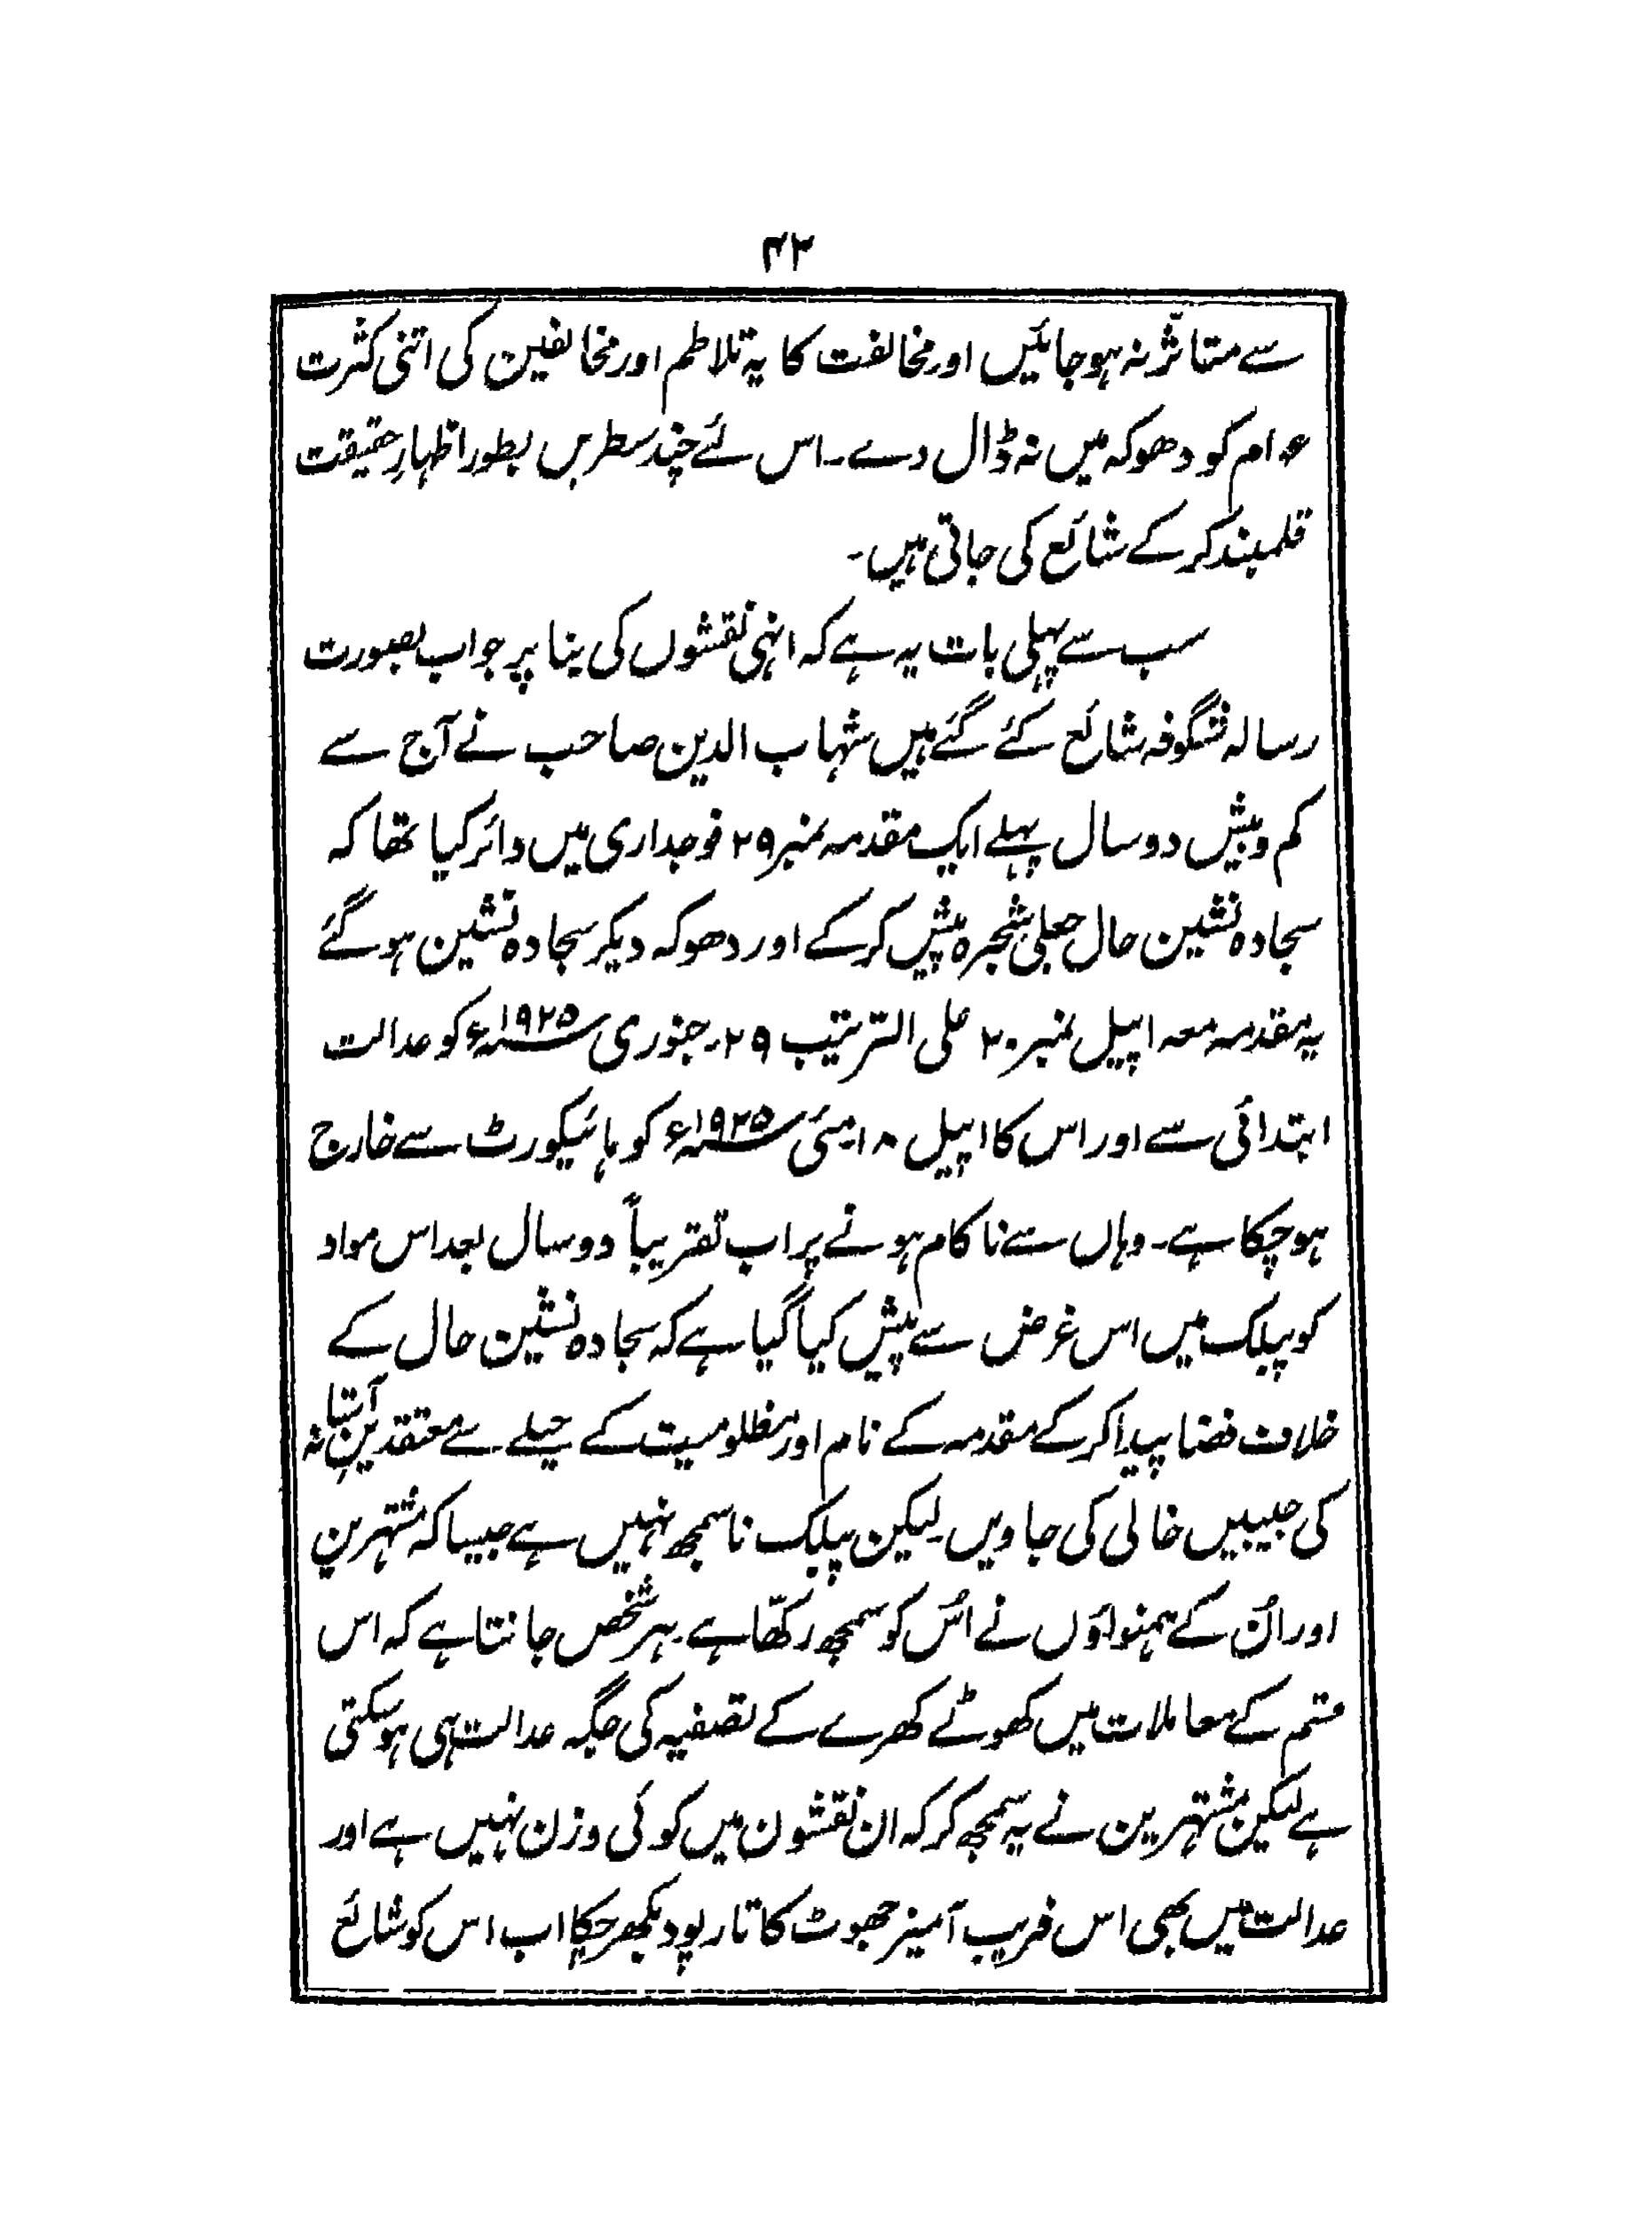 ۴۲
سے متاثر نہ ہو جائیں اور مخالفت کا یہ تلاطم اور مخالفین کی اتنی کثرت
عوام کو دھوکہ میں نہ ڈال دے۔ اس لئے چند سطریں بطور اظہارِ حقیقت
قلمبند کرکے شائع کی جاتی ہیں۔
سب سے پہلی بات یہ ہے کہ انہی نقشوں کی بنا پر جو اب بصورت
رسالہ شگوفہ شائع کئے گئے ہیں شہاب الدین صاحب نے آج سے
کم و بیش دو سال پہلے ایک مقدمہ نمبر ۲۹ فوجداری میں دائر کیا تھا کہ
سجادہ نشین حال جعلی شجرہ پیش کرکے اور دھوکہ دیکر سجادہ نشین ہو گئے
یہ مقدمہ معہ اپیل نمبر ۲۰ علی الترتیب ۲۹۔ جنوری ۱۹۲۵ء کو عدالت
ابتدائی سے اور اس کا اپیل ۱۸ مئی ۱۹۲۵ء کو ہائیکورٹ سے خارج
ہو چکا ہے۔ وہاں سے ناکام ہونے پر اب تقریباً دو سال بعد اس مواد
کو پبلک میں اس غرض سے پیش کیا گیا ہے کہ سجادہ نشین حال کے
خلاف فضا پیدا کرکے مقدمہ کے نام اور مظلومیت کے حیلے سے معتقدینِ آستانہ
کی جیبیں خالی کی جاویں۔ لیکن پبلک ناسمجھ نہیں ہے جیسا کہ مشتہرین
اور اُن کے ہمنواؤں نے اُس کو سمجھ رکھّا ہے۔ ہر شخص جانتا ہے کہ اس
قسم کے معاملات میں کھوٹے کھرے کے تصفیہ کی جگہ عدالت ہی ہو سکتی
ہے لیکن مشتہرین نے یہ سمجھ کر کہ ان نقشون میں کوئی وزن نہیں ہے اور
عدالت میں بھی اس فریب آمیز جھوٹ کا تار پود بکھر چکا اب اس کو شائع